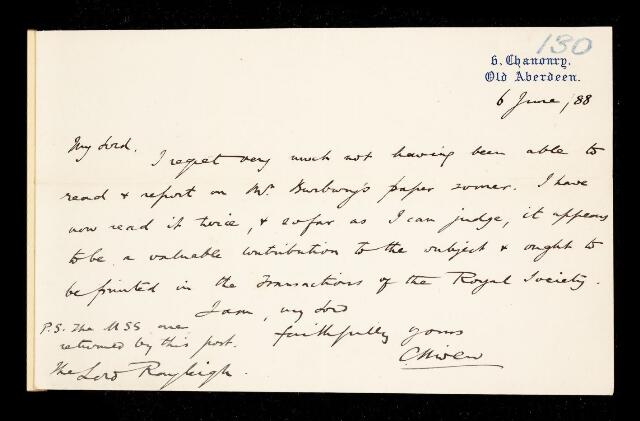 130
6, Chanonry,
Old Aberdeen.
6 June, 88
My Lord.
I regret very much not having been able to
read & report on Mr. Burbury's paper sooner. I have
now read it twice, & so far as I can judge, it appears
to be a valuable contribution to the subject & ought to
be printed in the Transactions of the Royal Society.
I am, my Lord
faithfully yours
C Niven
P.S. The MSS are
returned by this post.
The Lord Rayleigh.